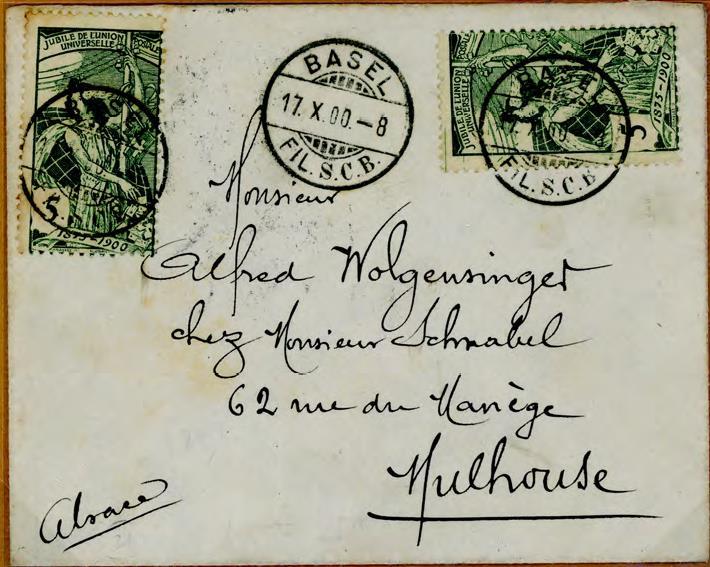 JUBILE DE L'UNION POSTALE
UNIVERSELLE
BASEL
5
1875-1900
BASEL
17. X. 00.-8
FIL. S.C.B.
JUBILE DE L'UNION POSTALE
UNIVERSELLE
BASEL
5
1875-1900
FIL. S.C.B.
Monsieur
Alfred Wolgensinger
chez Monsieur Schnabel
62 rue du Manège
Mulhouse
Alsace